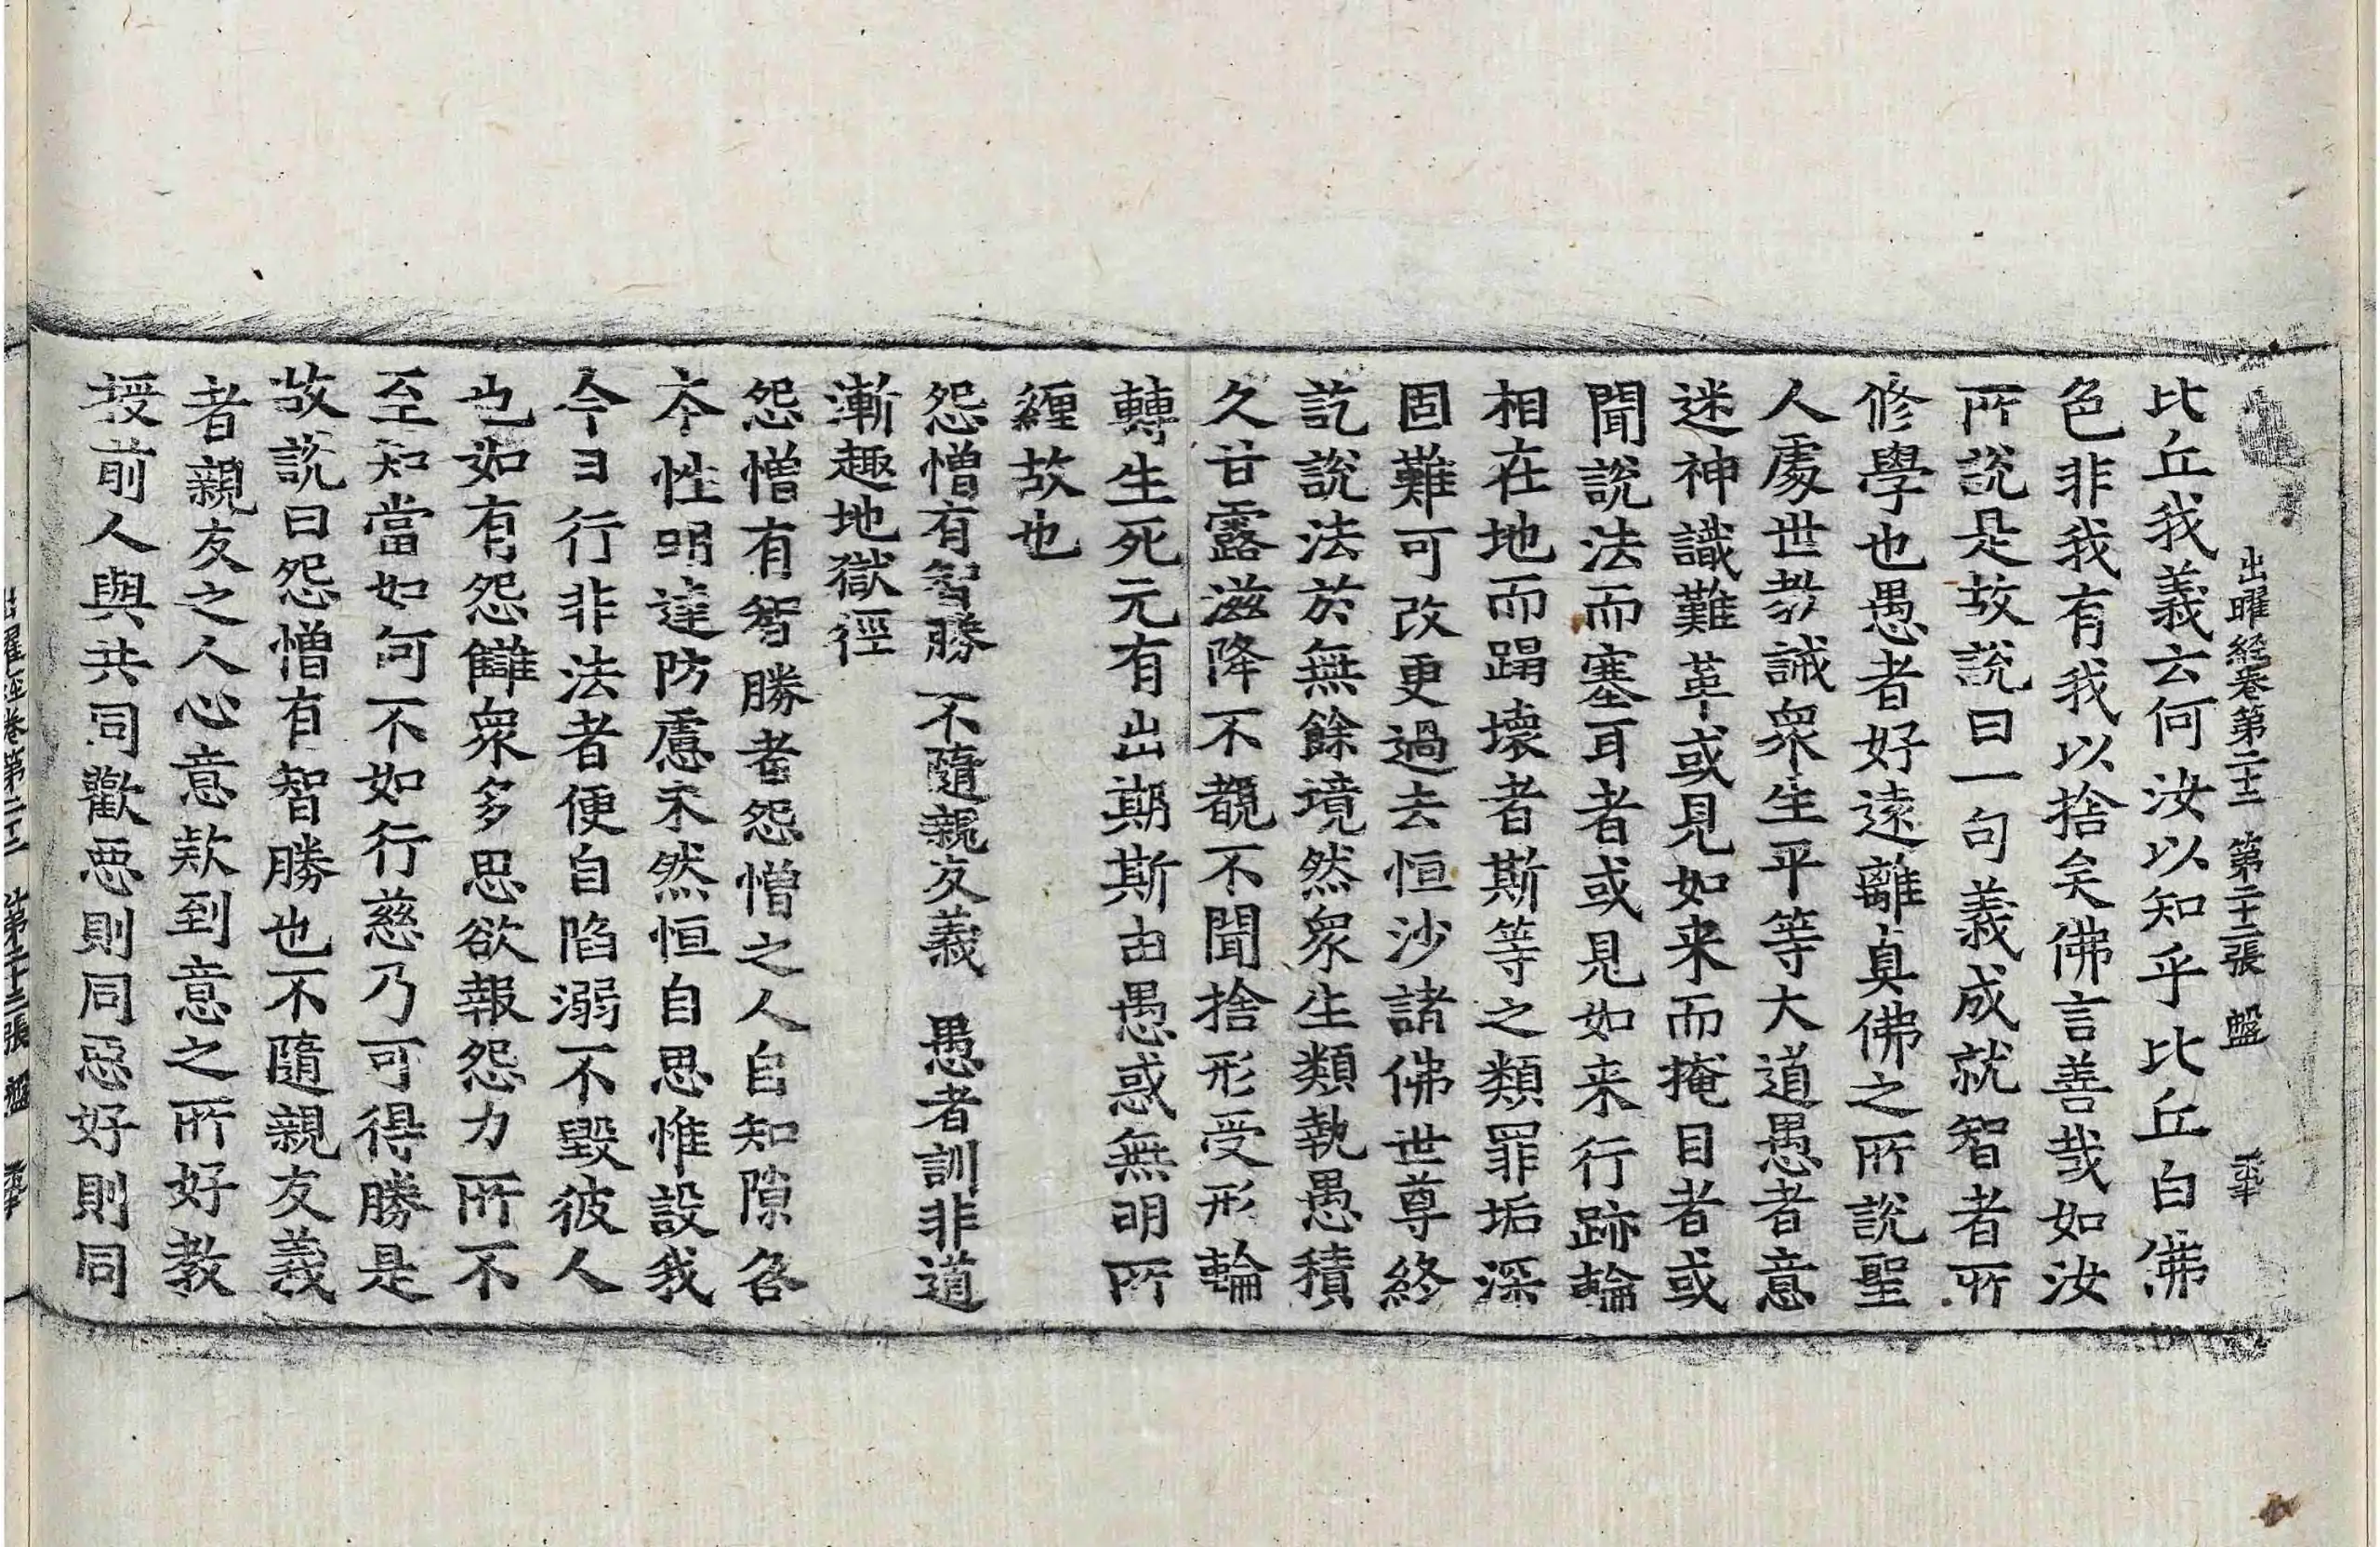 出曜経卷第二十二 第二十二張 盤
比丘我義云何汝以知乎比丘白佛
色非我有我以捨矣佛言善哉如汝
所說是故說曰一句義成就智者所
修學也愚者好遠離真佛之所說聖
人處世教誡衆生平等大道愚者意
迷神識難革或見如来而掩目者或
聞說法而塞耳者或見如来行跡輪
相在地而蹋壞者斯等之類罪垢深
固難可改更過去恒沙諸佛世尊終
訖說法於無餘境然衆生類執愚積
久甘露滋降不覩不聞捨形受形輪
轉生死元有出期斯由愚惑無明所
纏故也
怨憎有智勝 不隨親友義 愚者訓非道
漸趣地獄徑
怨憎有智勝者怨憎之人自知隙咎
本性明達防慮未然恒自思惟設我
今日行非法者便自陷溺不毀彼人
也如有怨讎衆多思欲報怨力所不
至知當如何不如行慈乃可得勝是
故說曰怨憎有智勝也不隨親友義
者親友之人心意款到意之所好教
授前人與共同歡惡則同惡好則同